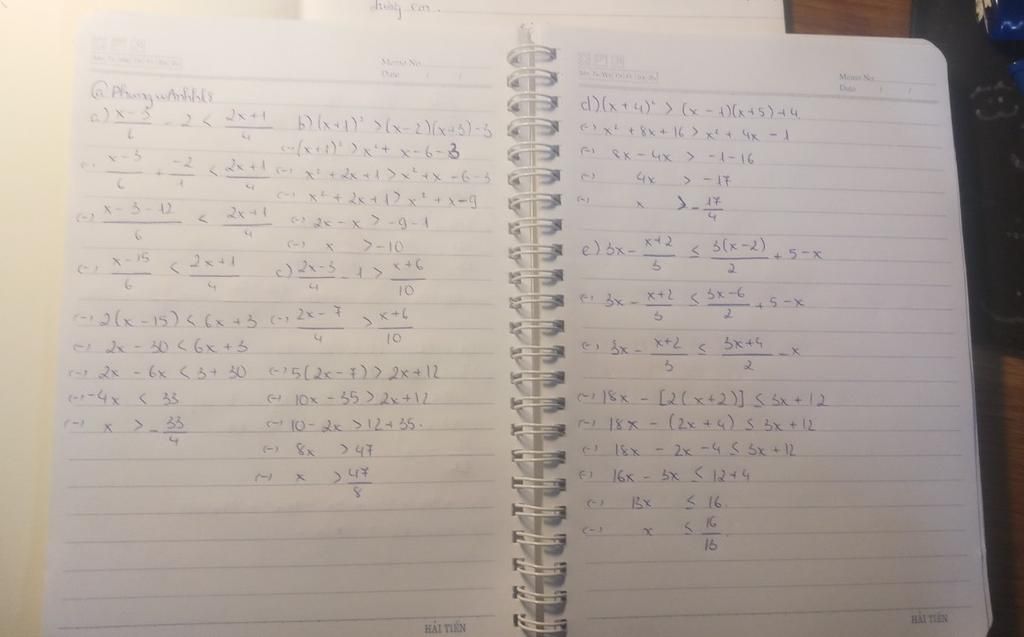 chúng em.
Memo No.
Date / /
a) x-3/6 - 2 < 2x+1/4
(-) x-3/6 + -2/1 < 2x+1/4
(-) x-3-12/6 < 2x+1/4
(-) x-15/6 < 2x+1/4
(-) 2(x-15) < 6x+3
(-) 2x - 30 < 6x+3
(-) 2x - 6x < 3+30
(-) -4x < 33
(-) x > -33/4
b) (x+1)² > (x-2)(x+3)-3
(-) (x+1)² > x² + x-6-3
(-) x² + 2x+1 > x² + x-6-3
(-) x² + 2x+1 > x² + x-9
(-) 2x - x > -9-1
(-) x > -10
c) 2x-3/4 - 1 > x+6/10
(-) 2x-7/4 > x+6/10
(-) 5(2x-7) > 2x+12
(-) 10x - 35 > 2x+12
(-) 10-2x > 12+35.
(-) 8x > 47
(-) x > 47/8
HẢI TIẾN
Memo No.
Date / /
d) (x+4)² > (x-1)(x+5)+4
(-) x² + 8x+16 > x² + 4x - 1
(-) 8x-4x > -1-16
(-) 4x > -17
(-) x > -17/4
e) 3x - x+2/3 ≤ 3(x-2)/2 + 5-x
(-) 3x - x+2/3 ≤ 3x-6/2 + 5-x
(-) 3x - x+2/3 ≤ 3x+4/2 - x
(-) 18x - [2(x+2)] ≤ 3x+12
(-) 18x - (2x+4) ≤ 3x+12
(-) 18x - 2x -4 ≤ 3x+12
(-) 16x - 3x ≤ 12+4
(-) 13x ≤ 16
(-) x ≤ 16/13
HẢI TIẾN